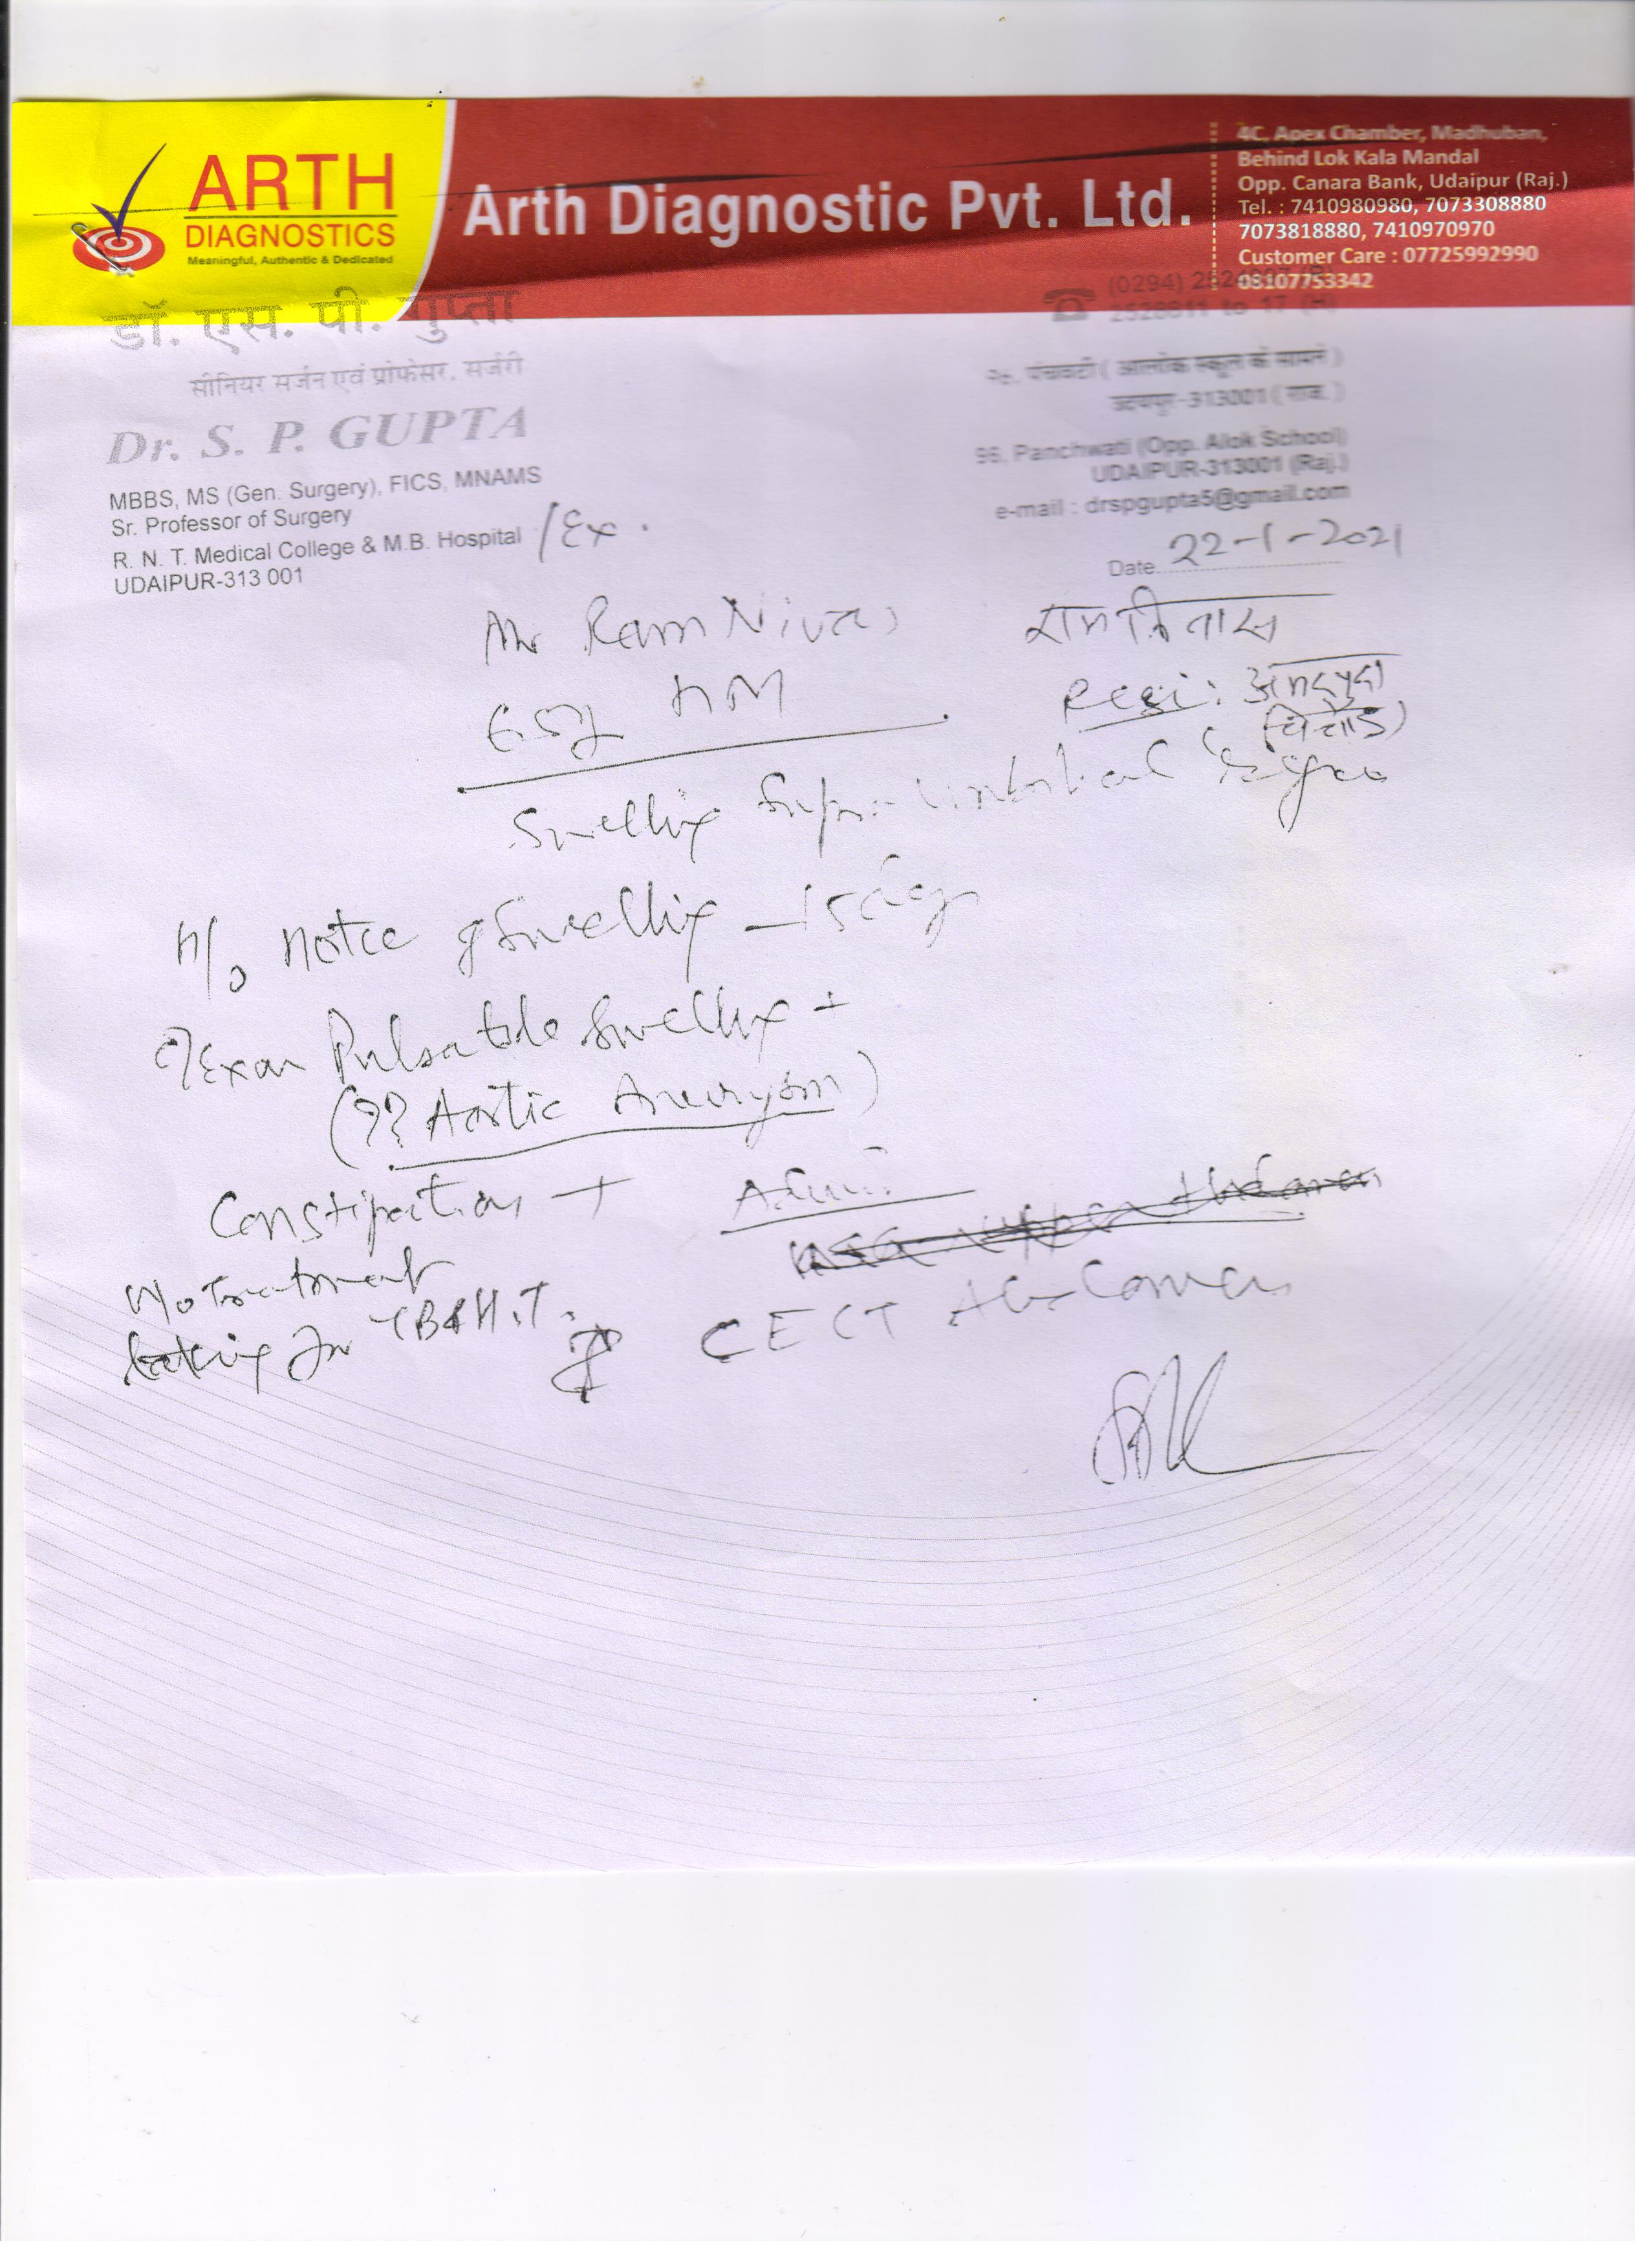 ARTH
DIAGNOSTICS
Meaningful, Authentic & Dedicated
Arth Diagnostic Pvt. Ltd.
4C, Apex Chamber, Madhuban,
Behind Lok Kala Mandal
Opp. Canara Bank, Udaipur (Raj.)
Tel. : 7410980980, 7073308880
7073818880, 7410970970
Customer Care : 07725992990
08107753342
डॉ. एस. पी. गुप्ता
सीनियर सर्जन एवं प्रोफेसर, सर्जरी
Dr. S. P. GUPTA
MBBS, MS (Gen. Surgery), FICS, MNAMS
Sr. Professor of Surgery
R. N. T. Medical College & M.B. Hospital /Ex.
UDAIPUR-313 001
(0294)
2528811 to 17 (H)
पंचवटी ( आलोक स्कूल के सामने )
उदयपुर-313001 ( राज. )
Panchwati (Opp. Alok School)
UDAIPUR-313001 (Raj.)
e-mail : drspgupta5@gmail.com
Date. 22-1-2021
Mr Ram Nivas रामनिवास
65y
Swelling Supra-Umbilical
H/o Notice of Swelling - 15 days
Exam Pulsatile Swelling +
(?? Aortic Aneurysm)
Constipation +
H/o Treatment
taking for
CECT Abdomen